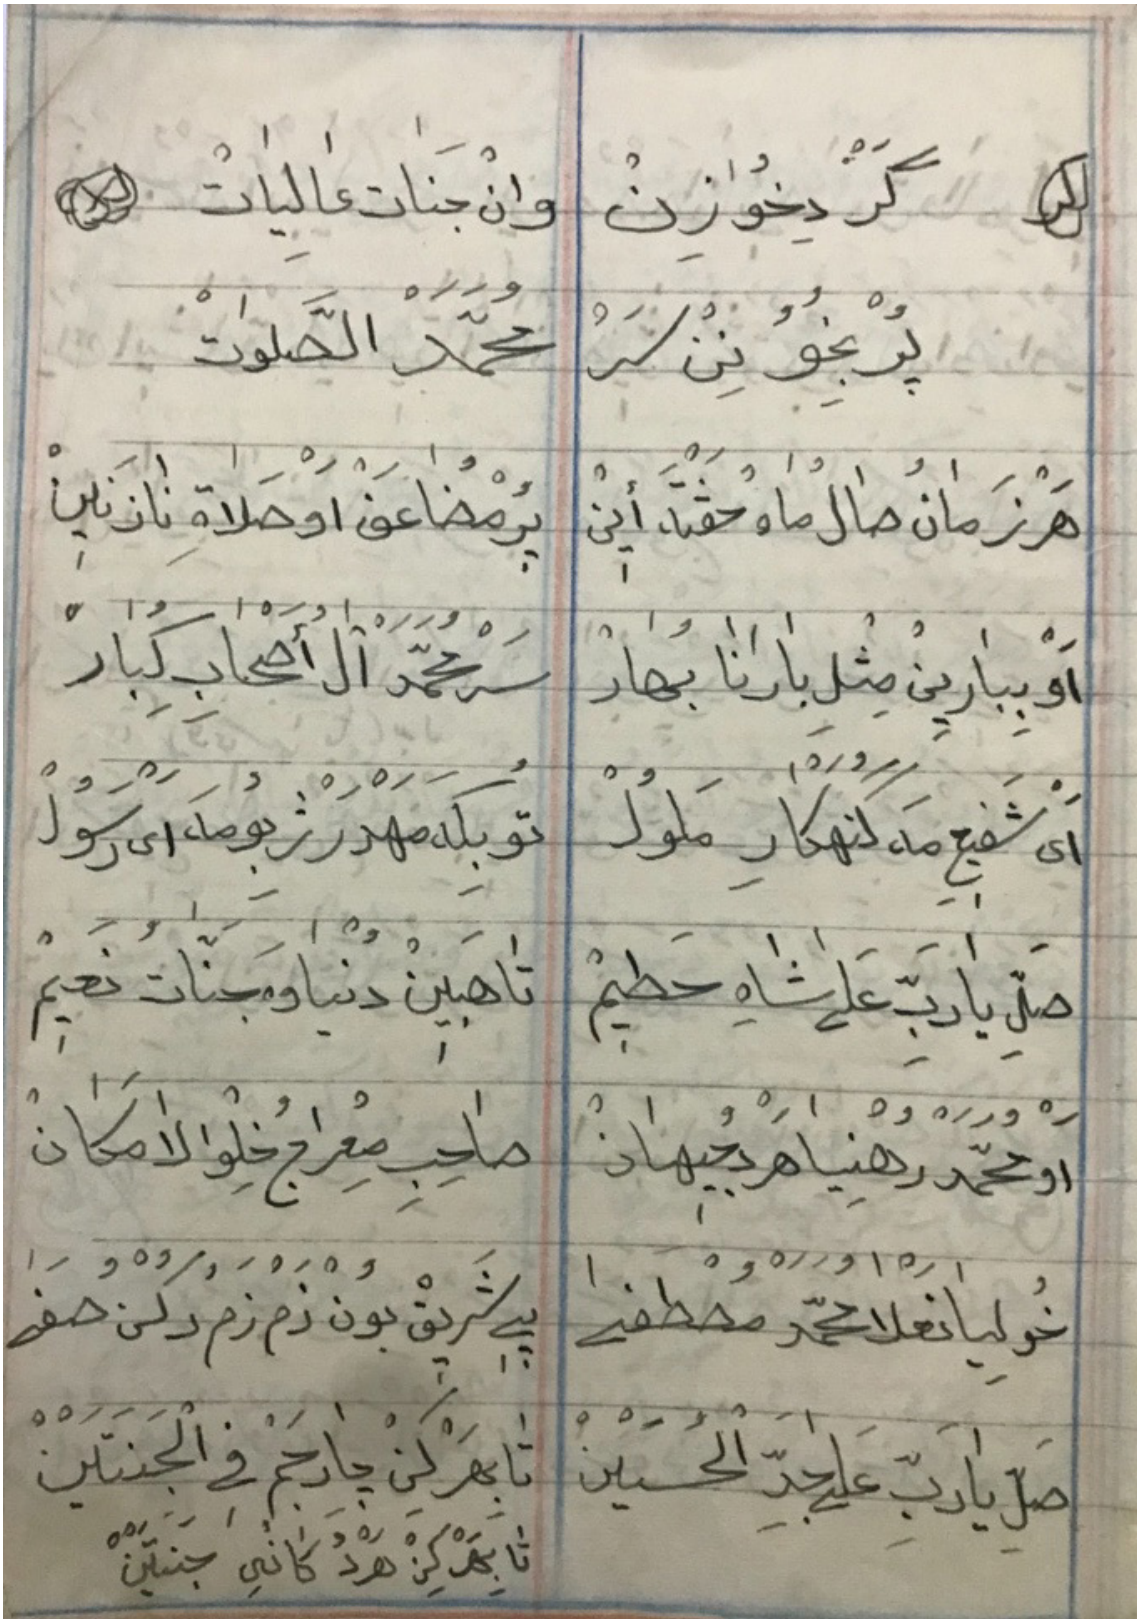 گَرْ دِخُوٰازِنْ وانْ جَنات عٰالِیٰاتْ
پُرْ بِخُوُنِنْ سَرْ مُحَمَّدْ الصَّلوٰاتْ
هَرْ زَمٰانْ صٰالُ مٰاهُ حَفْتَه أَیِنْ پُرْ مُضٰاعَفْ اَوْ صَلٰاةِ نٰازَنِینْ
اَوْ بِبٰارِینْ مِثْلِ بٰارٰانٰا بُهٰارْ سَرْ مُحَمَّدْ آلُ أَصْحٰابِ كِبٰارْ
اَیْ شَفِیعِ مَه گُنَهْكٰارِ مَلُولْ تو بِكَه مَهْدَرْ ژِ بُو مَه اَیْ رَسُولْ
صَلِّ یٰا رَبِّ عَلیٰ شٰاهِ حَطِیمْ تٰا هَبِینْ دُنْیٰا وَ جَنّٰاتُ نَعِیمْ
اَوْ مُحَمَّدْ رُهْنِیٰا هَرْدُ جِیهٰانْ صٰاحِبِ مِعْرٰاجُ خِلْوا لٰامَكٰانْ
خُولِیٰا نَعْلا مُحَمَّدْ مُصْطَفیٰ پێ شَرِیقْ بُونْ زَمْ زَمْ رُكْنُ صَفیٰ
صَلِّ یٰا رَبِّ عَلیٰ جَدِّ الْحُسَیْنْ تٰا بِهَرْكِنْ چٰارِ جَمْ فِی الْجَنَتَیْنْ
تٰا بِهَرْكِنْ هَرْدُ كٰانْیێ جَنَتَیْنْ